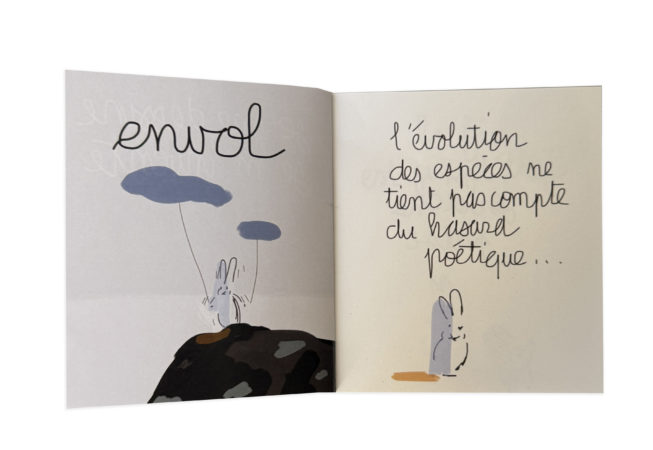 envol
l'évolution
des espèces ne
tient pas compte
du hasard
poétique...